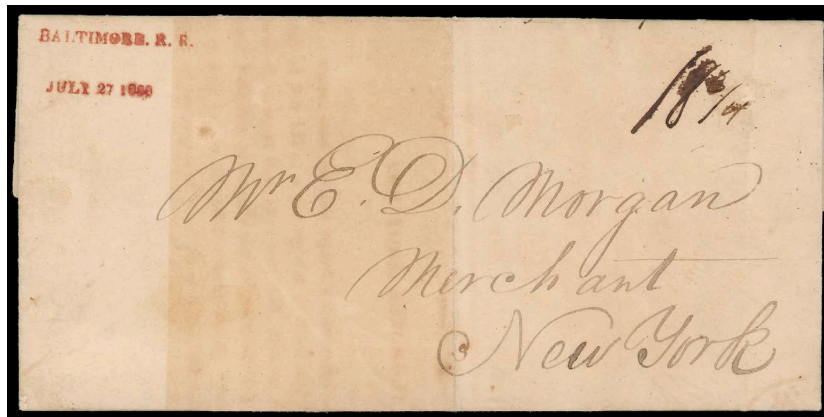 BALTIMORE. R. R.
JULY 27
18 3/4
Mr E. D. Morgan
Merchant
New York